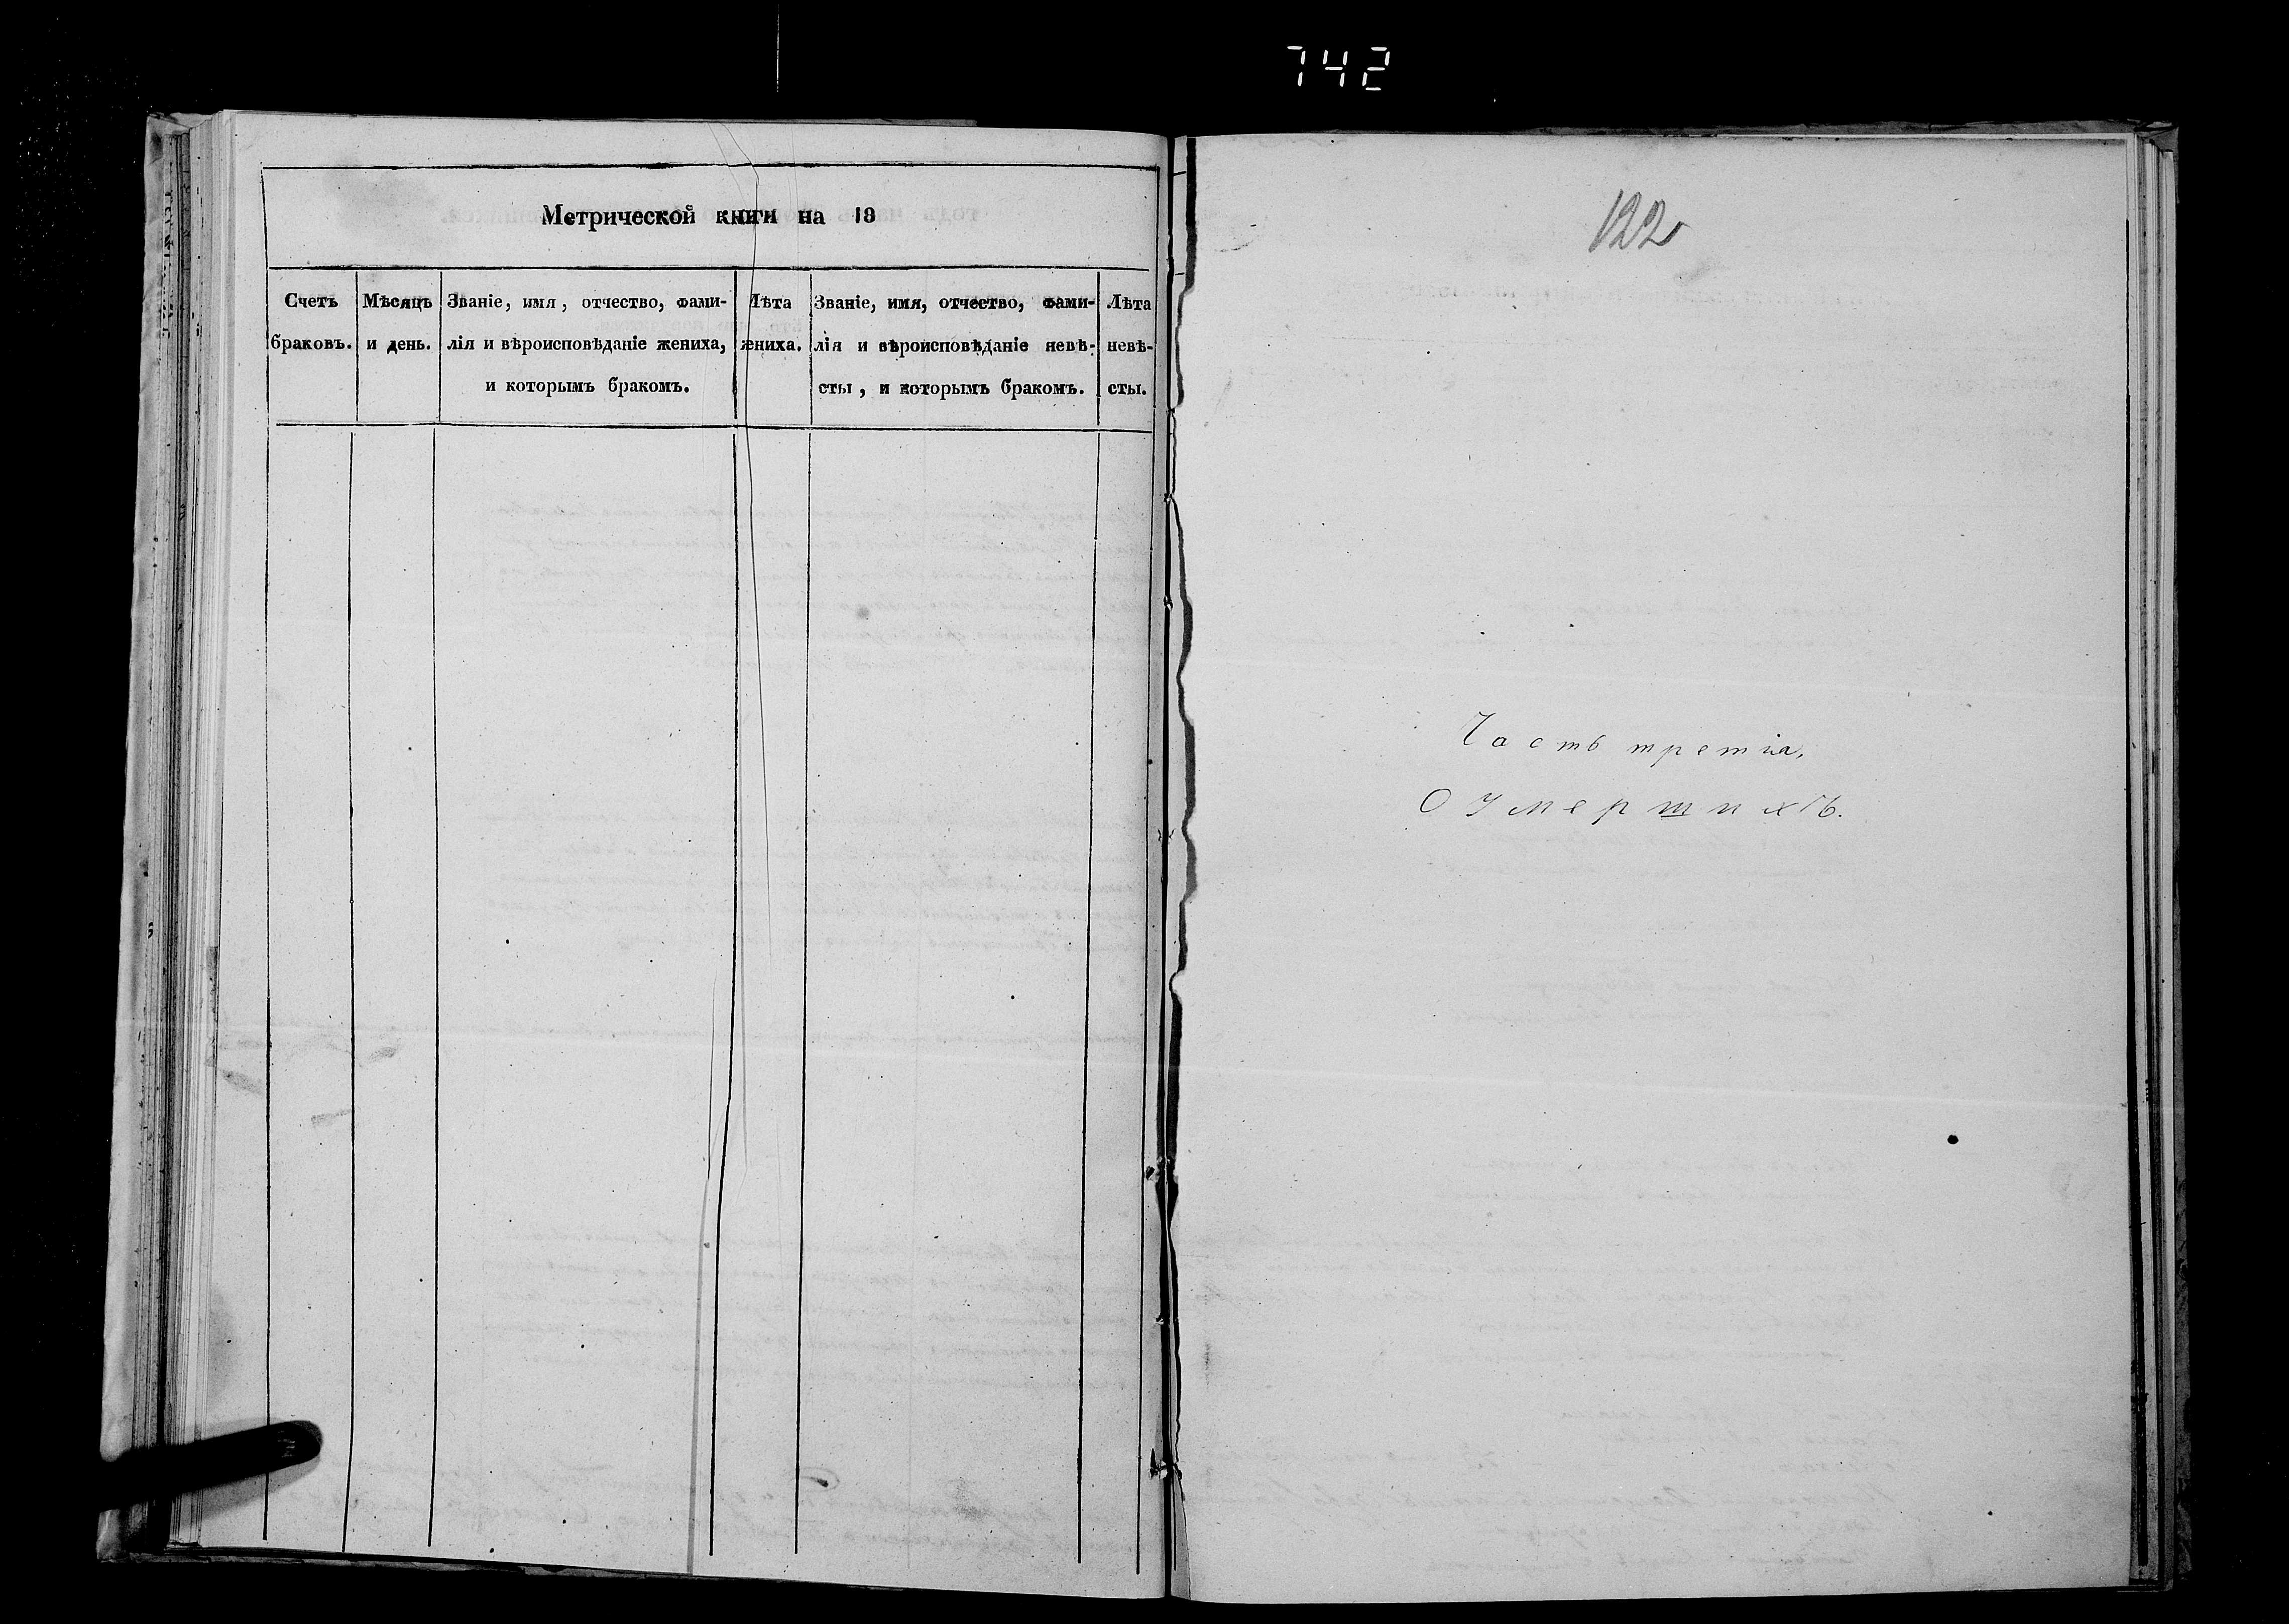 742
Метрической книги на 18
Счетъ браковъ.
Мѣсяцъ и день.
Званіе, имя, отчество, фами-
лія и вѣроисповѣданіе жениха,
и которымъ бракомъ.
Лѣта жениха.
Званіе, имя, отчество, фами-
лія и вѣроисповѣданіе невѣ-
сты, и которымъ бракомъ.
Лѣта невѣ-
сты.
122
Часть третіа,
О умершихъ.